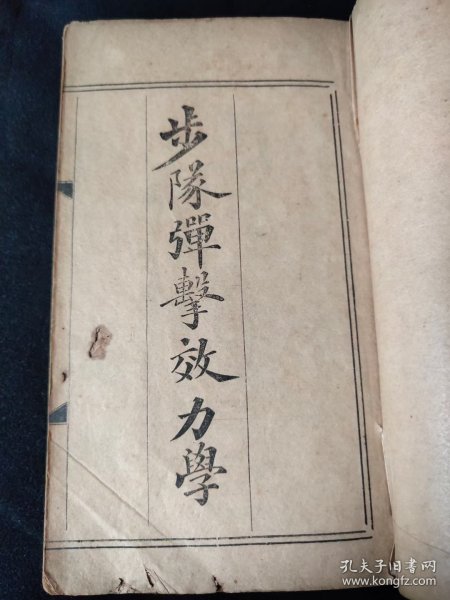 步隊彈擊效力學
孔夫子旧书网
www.kongfz.com